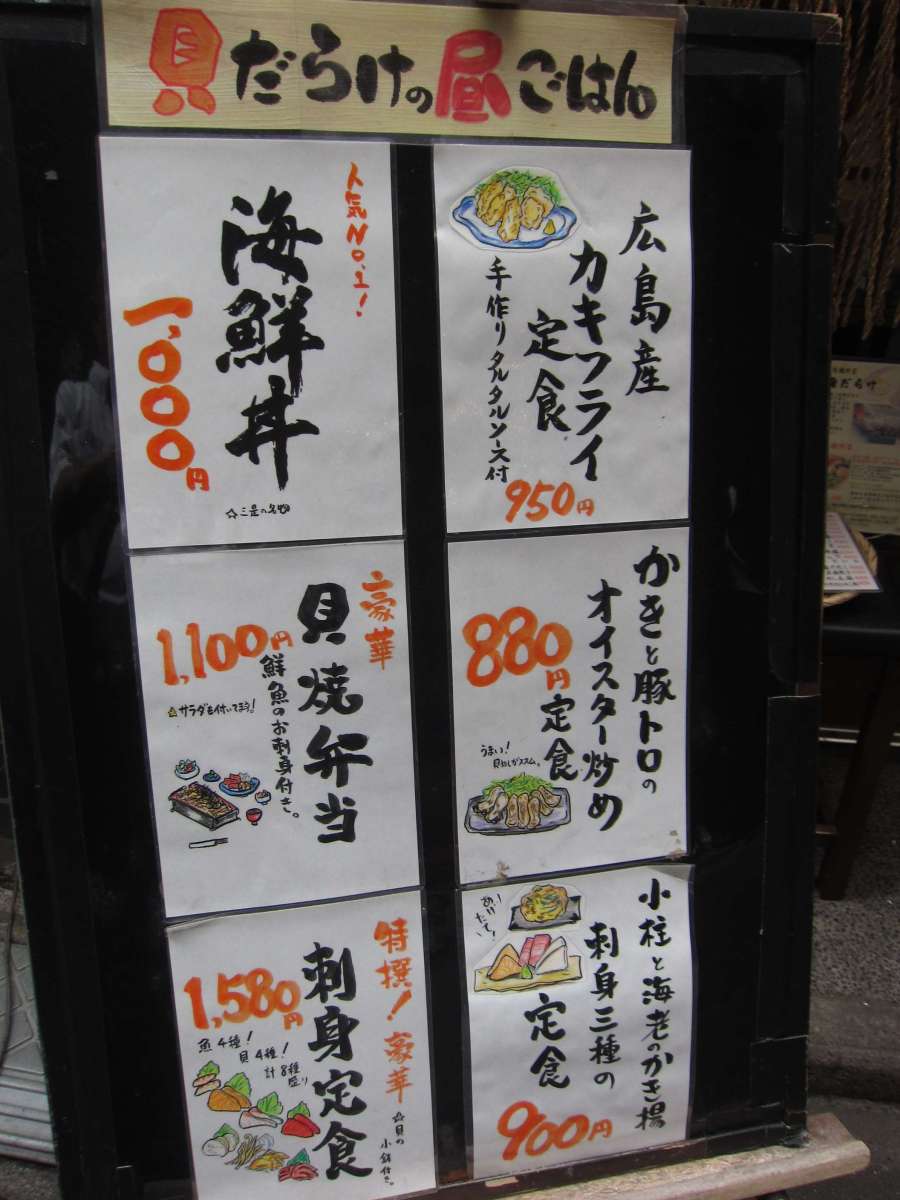 貝だらけの昼ごはん
広島産
カキフライ
定食
手作りタルタルソース付
950円
人気No.1!
海鮮丼
1,000円
かきと豚トロの
オイスター炒め
定食
880円
うまい!
豪華
貝焼弁当
鮮魚のお刺身付き。
1,100円
サラダも付いてます!
小柱と海老のかき揚
刺身三種の
定食
あげたて!
900円
特撰!豪華
刺身定食
☆貝の
小鉢付き。
1,580円
魚4種!
貝4種!
計8種
盛り